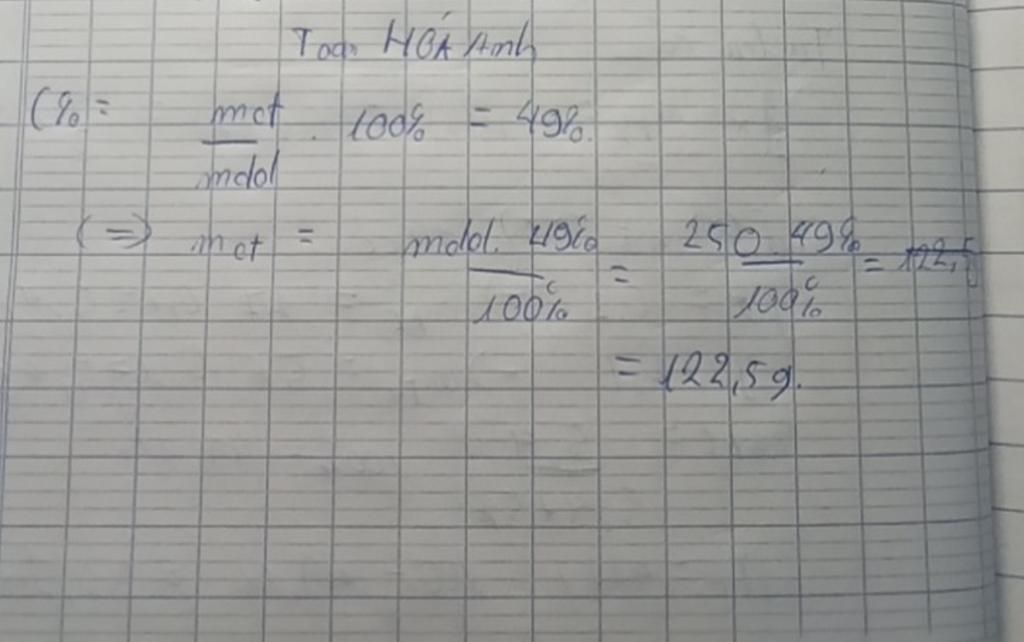 Toán HÓA Anh
C% = mct / mdd . 100% = 49%.
(=>) mct = mdd. 49% / 100% = 250.49% / 100% = 122,5
= 122,5g.